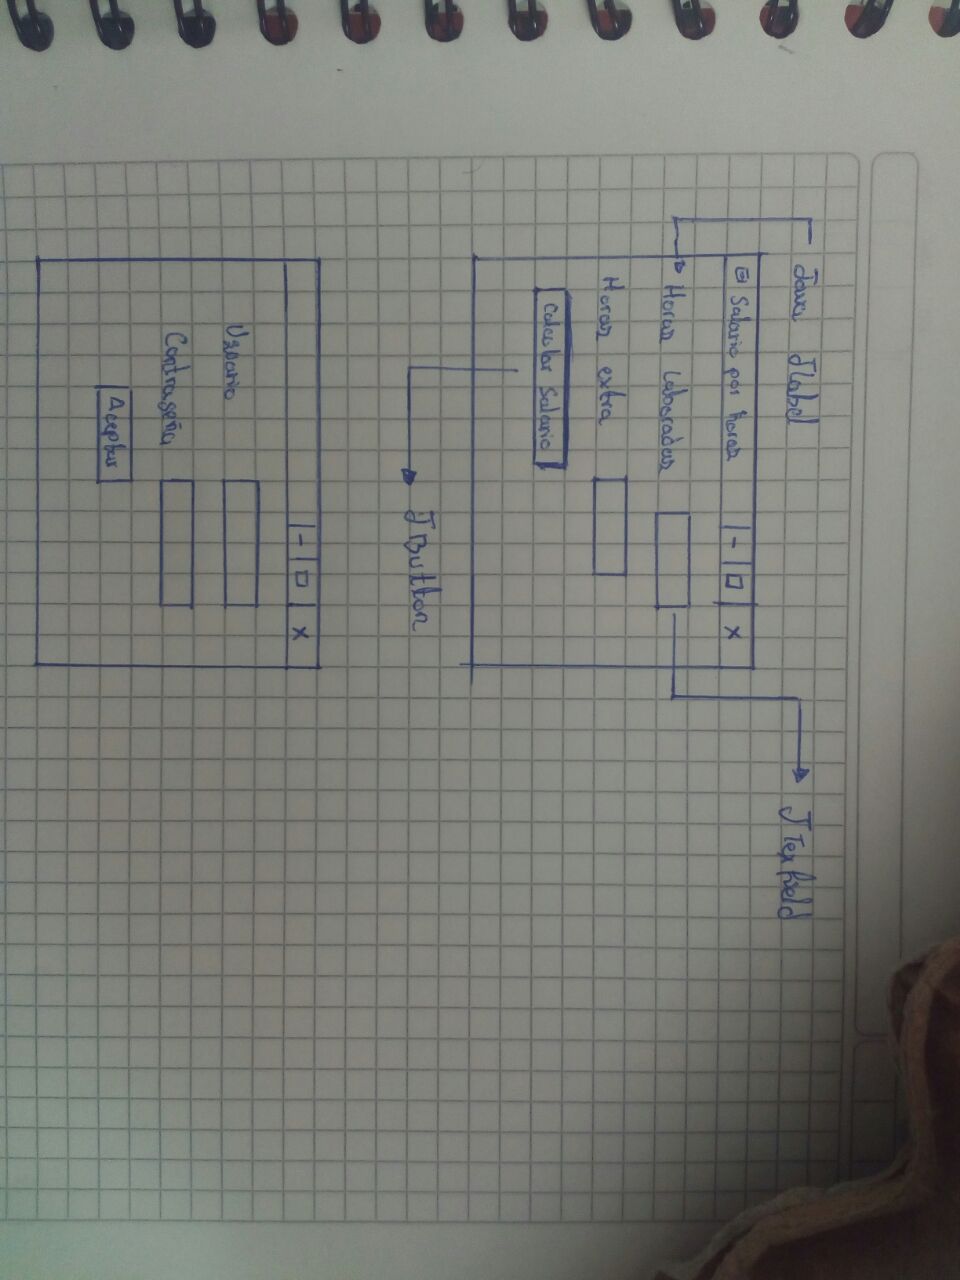 Java JLabel
Salario por horas - □ X
Horas Laboradas
JTexfield
Horas extra
Calcular Salario
JButton
- □ X
Usuario
Contraseña
Aceptar